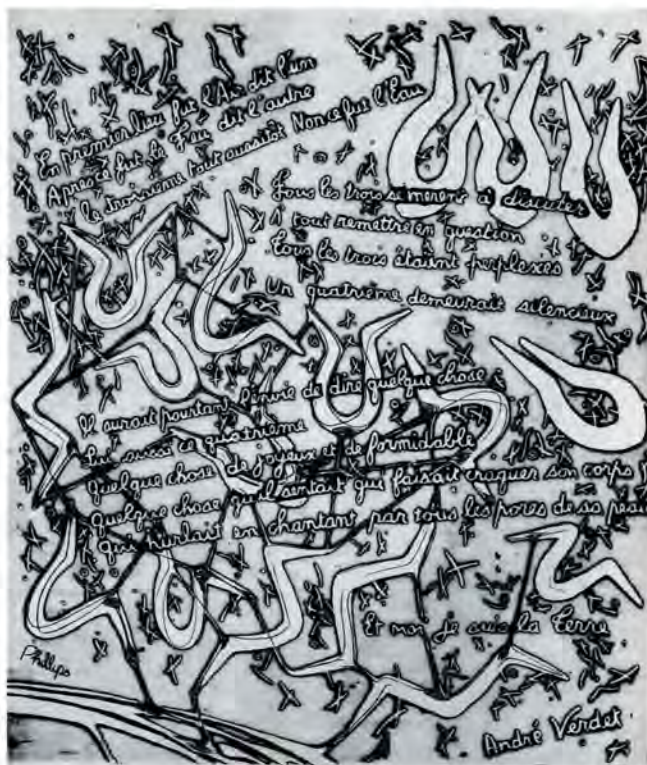 En premier lieu fut l'Air dit l'un
Après ce fut le Feu dit l'autre
le troisième tout aussitôt Non ce fut l'Eau
Tous les trois se mirent à discuter
à tout remettre en question
Tous les trois étaient perplexes
Un quatrième demeurait silencieux
Il aurait pourtant l'envie de dire quelque chose
Lui aussi ce quatrième
quelque chose de joyeux et de formidable
quelque chose qu'il sentait qui faisait craquer son corps
qui hurlait en chantant par tous les pores de sa peau
Et moi je suis la Terre
Phillips
André Verdet